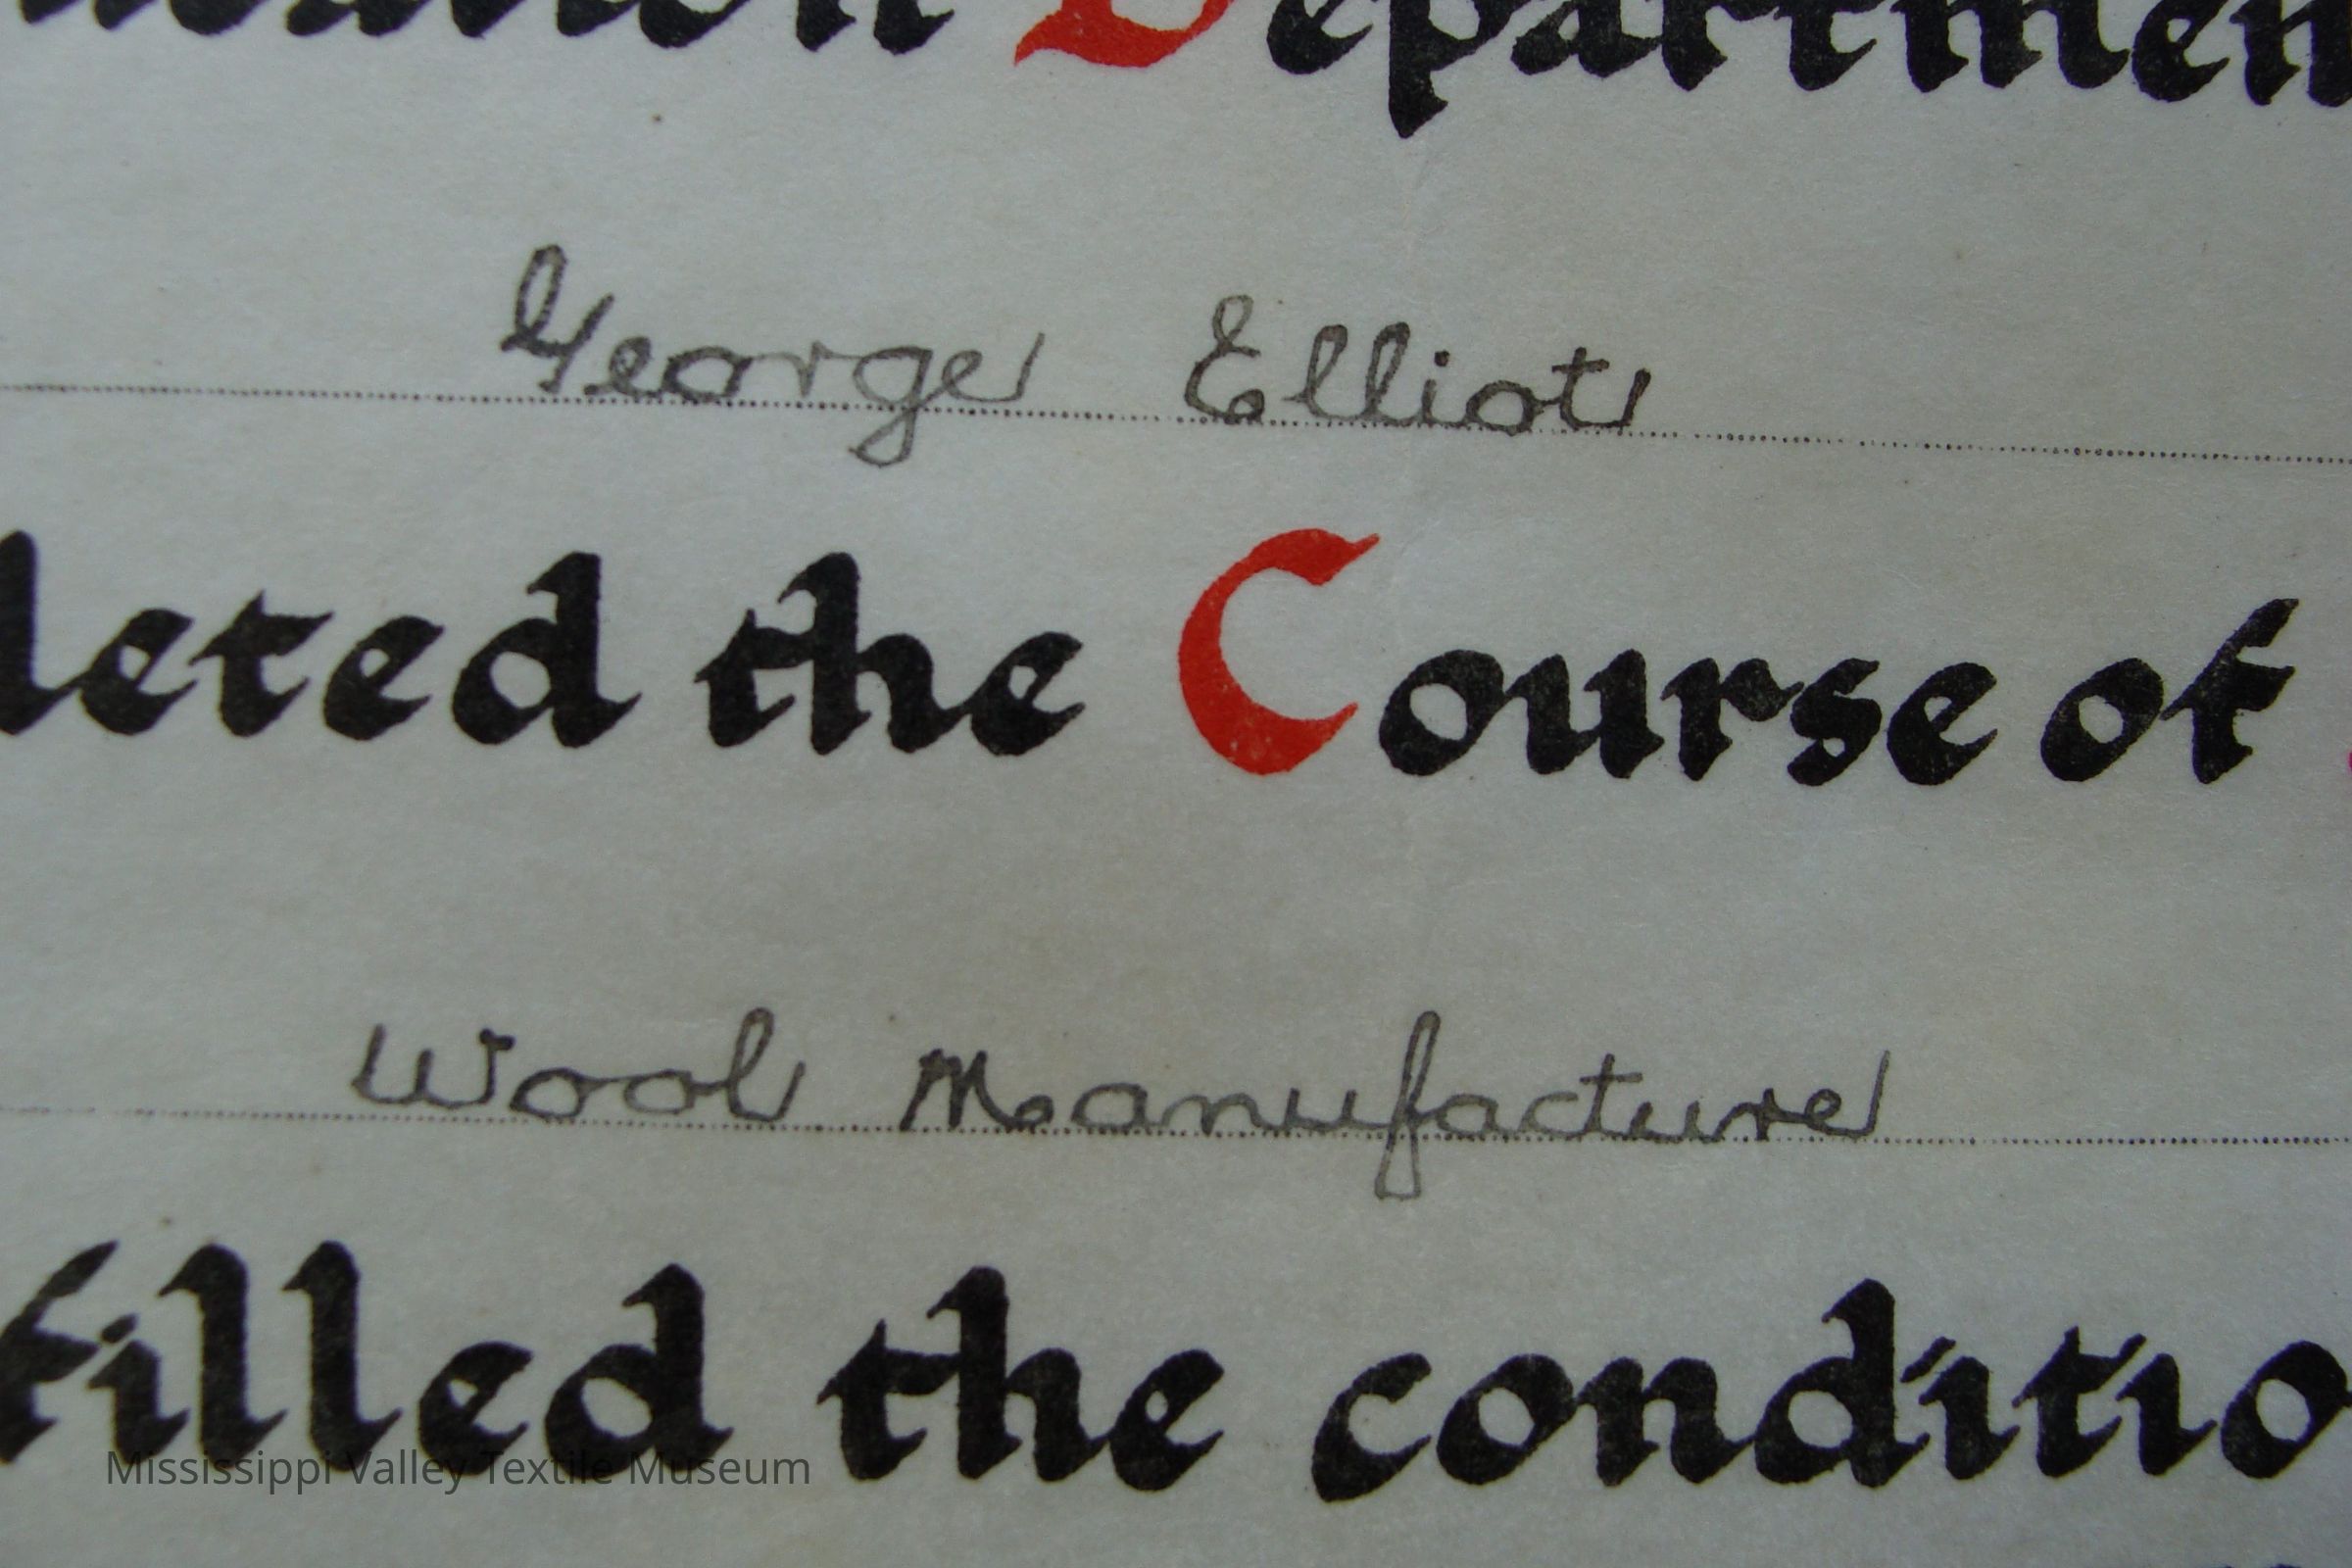 Department
George Elliot
leted the Course of
Wool Manufacture
filled the conditio
Mississippi Valley Textile Museum